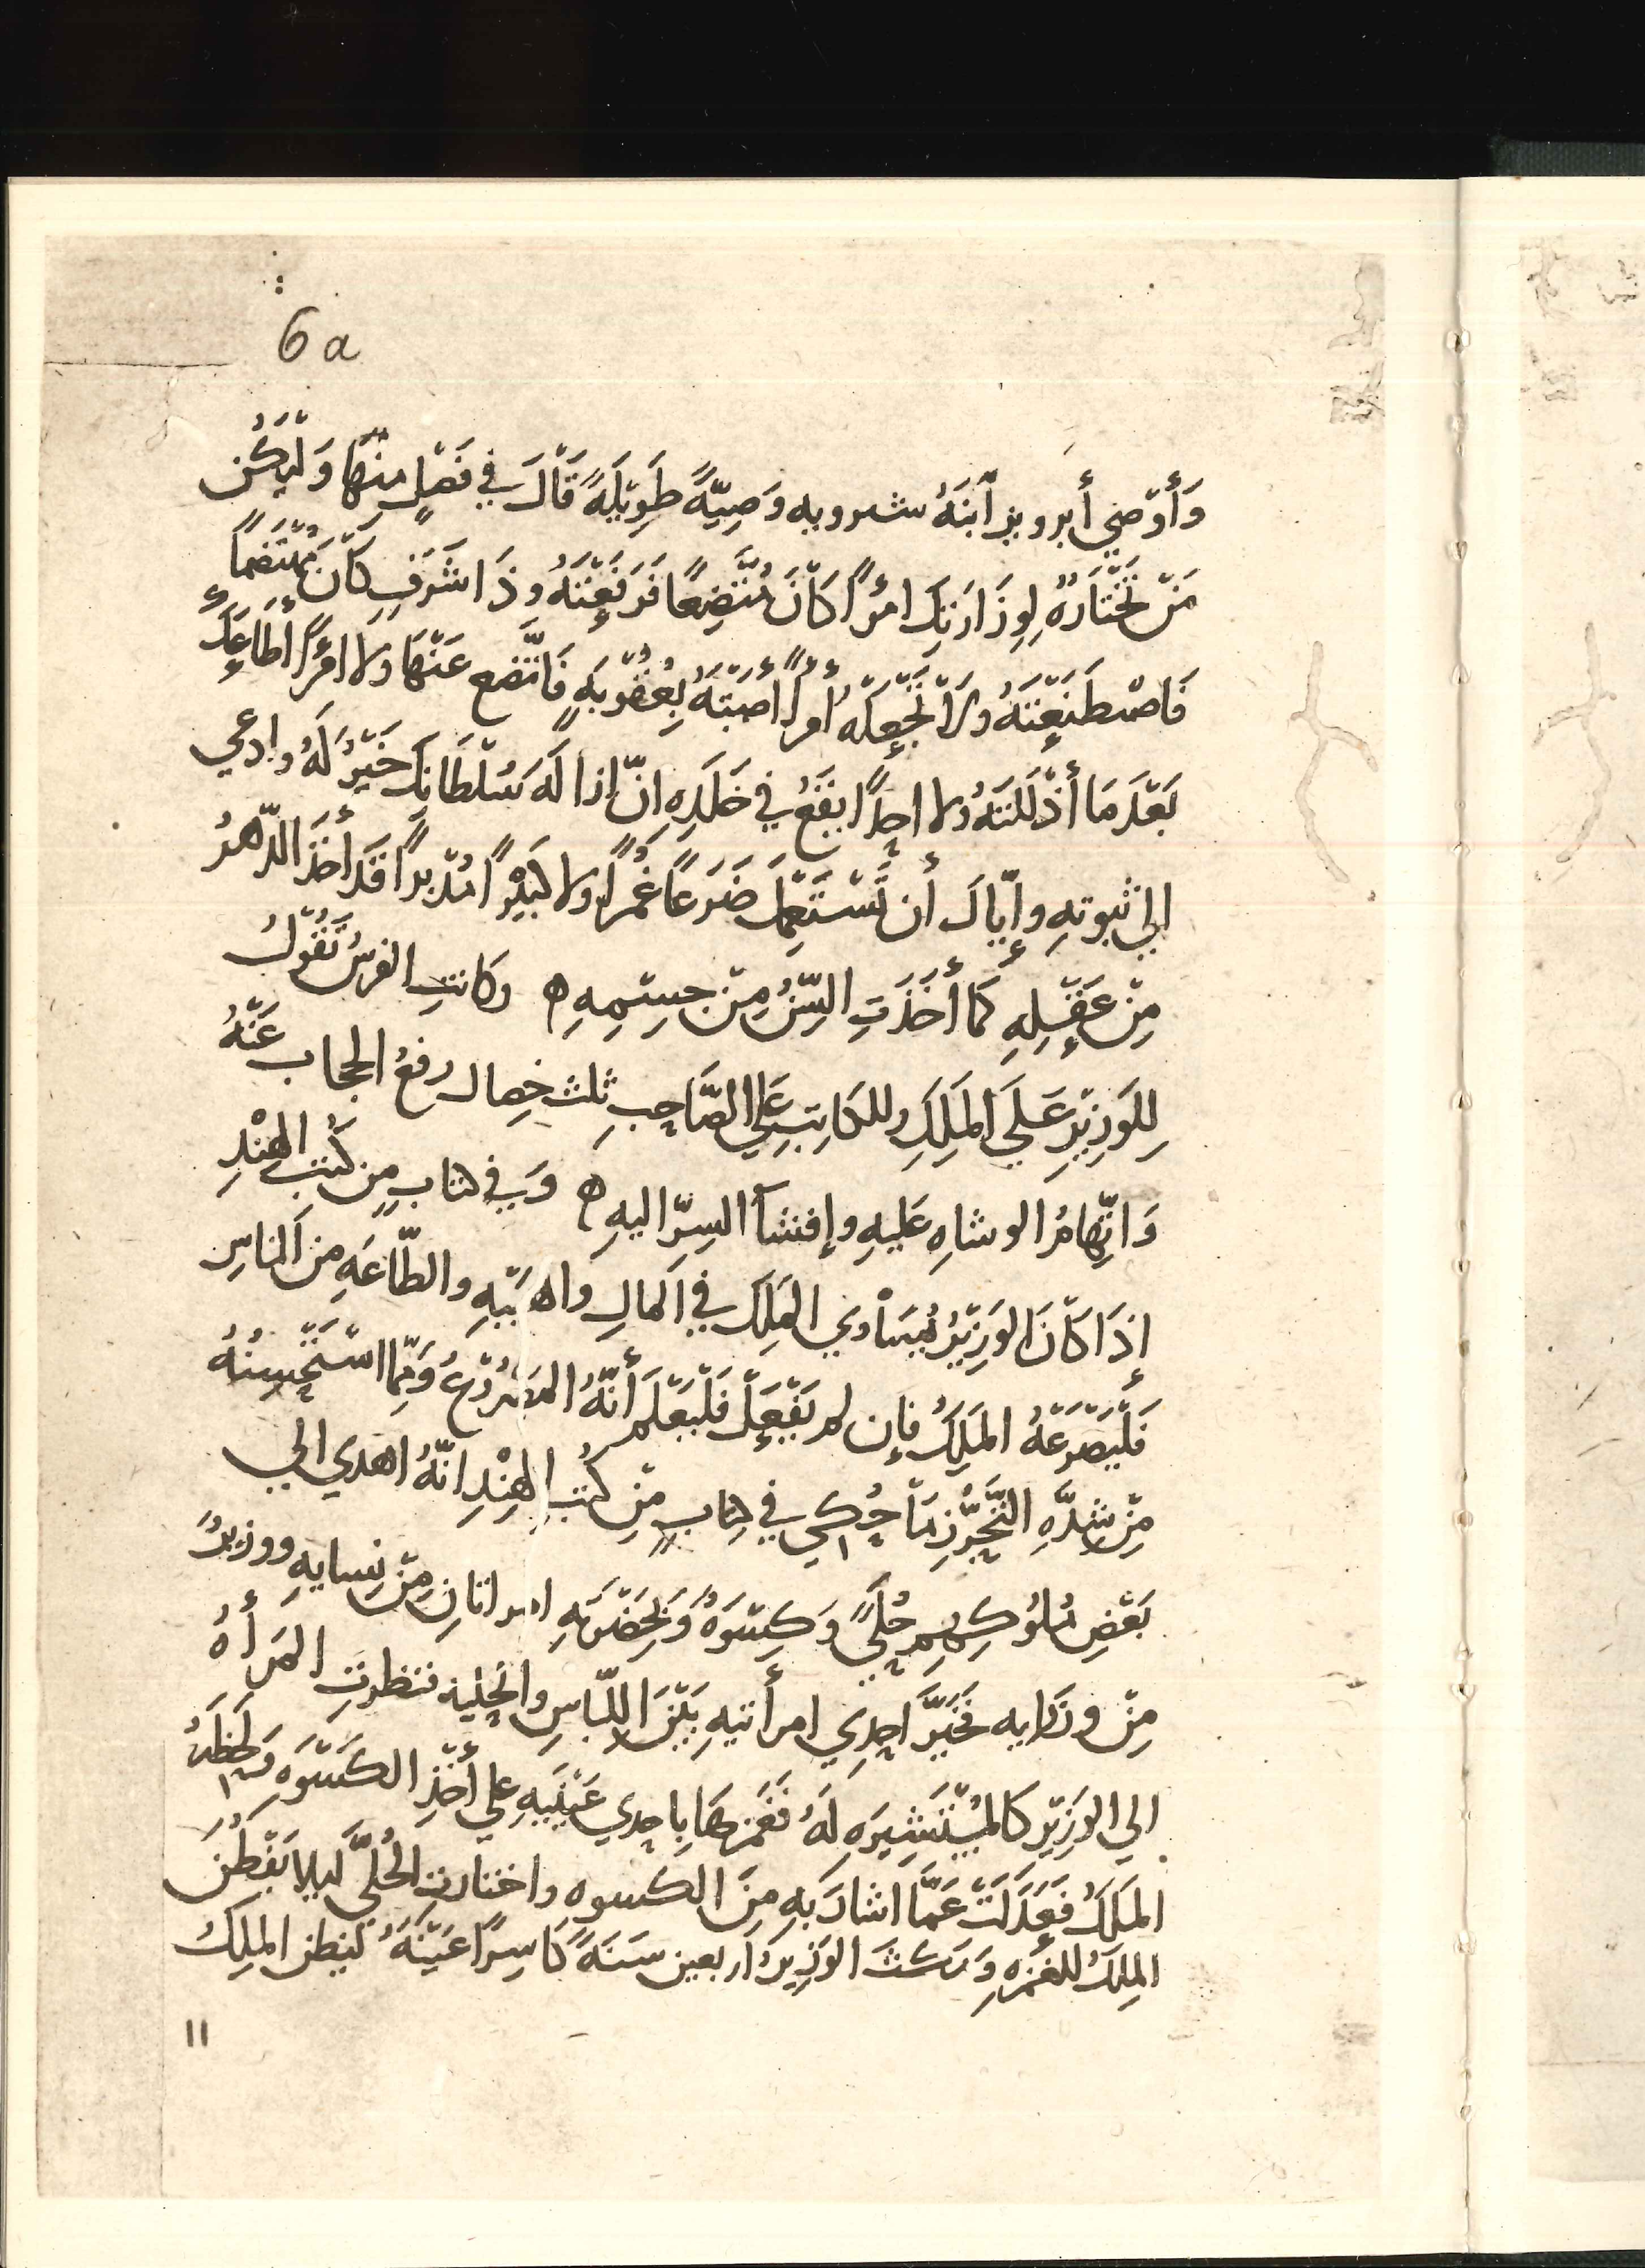 6a
وَأَوْصَي أبرويز ٱبْنَهُ شىرويه وَصِيَّةً طَوِيْلَةً قَالَ في فَصْلٍ مِنْهَا وَلْيَكُن
مَنْ تَخْتَارُهُ لِوِزَارَتِكَ امرًأ كَانَ مُتَّضِعًا فَرَفَعْتَهُ وذَا شَرَفٍ كَانَ مُهْتَضَمًا
فَاصْطَنَعْتَهُ وَلَا تَجْعَلْهُ أمرًأ أصَبْتَهُ بِعُقُوْبَةٍ فَاتَّضع عَنْهَا ولا امْرَأً أطَاعَكَ
بَعْدَ مَا أَذْلَلْتَهُ ولا احدًا يَقَعُ في خَلَدِهِ انّ ازالَةَ سُلْطَانِكَ خَيْرٌ لَهُ وادعي
الي ثبوتهِ وإيّاكَ أن تَسْتَعْمِلَ ضَرَعًا غُمْرًا ولا كَبِيْرًا مُدْبِرًا قَد اخَذَ الدّهرُ
مِنْ عَقْلِهِ كَمَا أَخَذَتِ السِّنُ مِنْ جِسْمِهِ ه وكانتِ الفرسُ تَقُوْلُ
لِلوَزِيْرِ عَلَى المَلِكِ وللكَاتِبِ عَلَي الصَّاحِبِ ثلث خِصالٍ رفعُ الحجابِ عَنْهُ
وَاتِّهامُ الوشاهِ عَليهِ وإفشآ السِرّ اليهِ ه وَفي كتابٍ مِن كُتب الهِنْدِ
إِذَا كَانَ الوَزِيْرُ يُسَاْوي المَلِكَ في المالِ والهَيْبَهِ والطّاعَهِ منَ الناسِ
فَلْيَصْرَعْهُ المَلِكُ فإن لم يَفْعَلْ فَلْيَعْلَم أنّهُ المَصْرُوْعُ وَمِمّا اسْتَحْسِنُهُ
مِنْ شِدَّهِ التَّحَرُّزِ مَا حُكِيَ في كِتابٍ مِن كُتبِ الهِنْدِ انّهُ اهدي الي
بَعْضِ مُلُوْكِهِم حُلِيٌّ وَكِسْوَهٌ وَبِحَضْرَتِهِ امراتانِ مِنْ نِسايهِ ووزيرٌ
مِنْ وزرايه فَخَيَّرَ احِدي امرأتيهِ بَيْنَ اللّباسِ والحِلية فنظرَتِ المَرأهُ
الي الوَزِيْرِ كَالْمُسْتَشِيرَهِ لَهُ فَغَمَزَهَا باِحِدي عَيْنَيهِ علي أخْذِ الكَسْوَهِ وَلَحَظَهُ
المَلكُ فَعَدَلَتْ عَمَّا اشارَ بهِ مِنَ الكسوهِ واختارتِ الحُلِيَّ ليلا يَفْطُنَ
المِلكُ للغمزهِ وَمَكثَ الوَزِيرُ اربعين سَنَةً كَاسِرًا عَيْنَهُ ليَظن المَلِكُ
۱۱